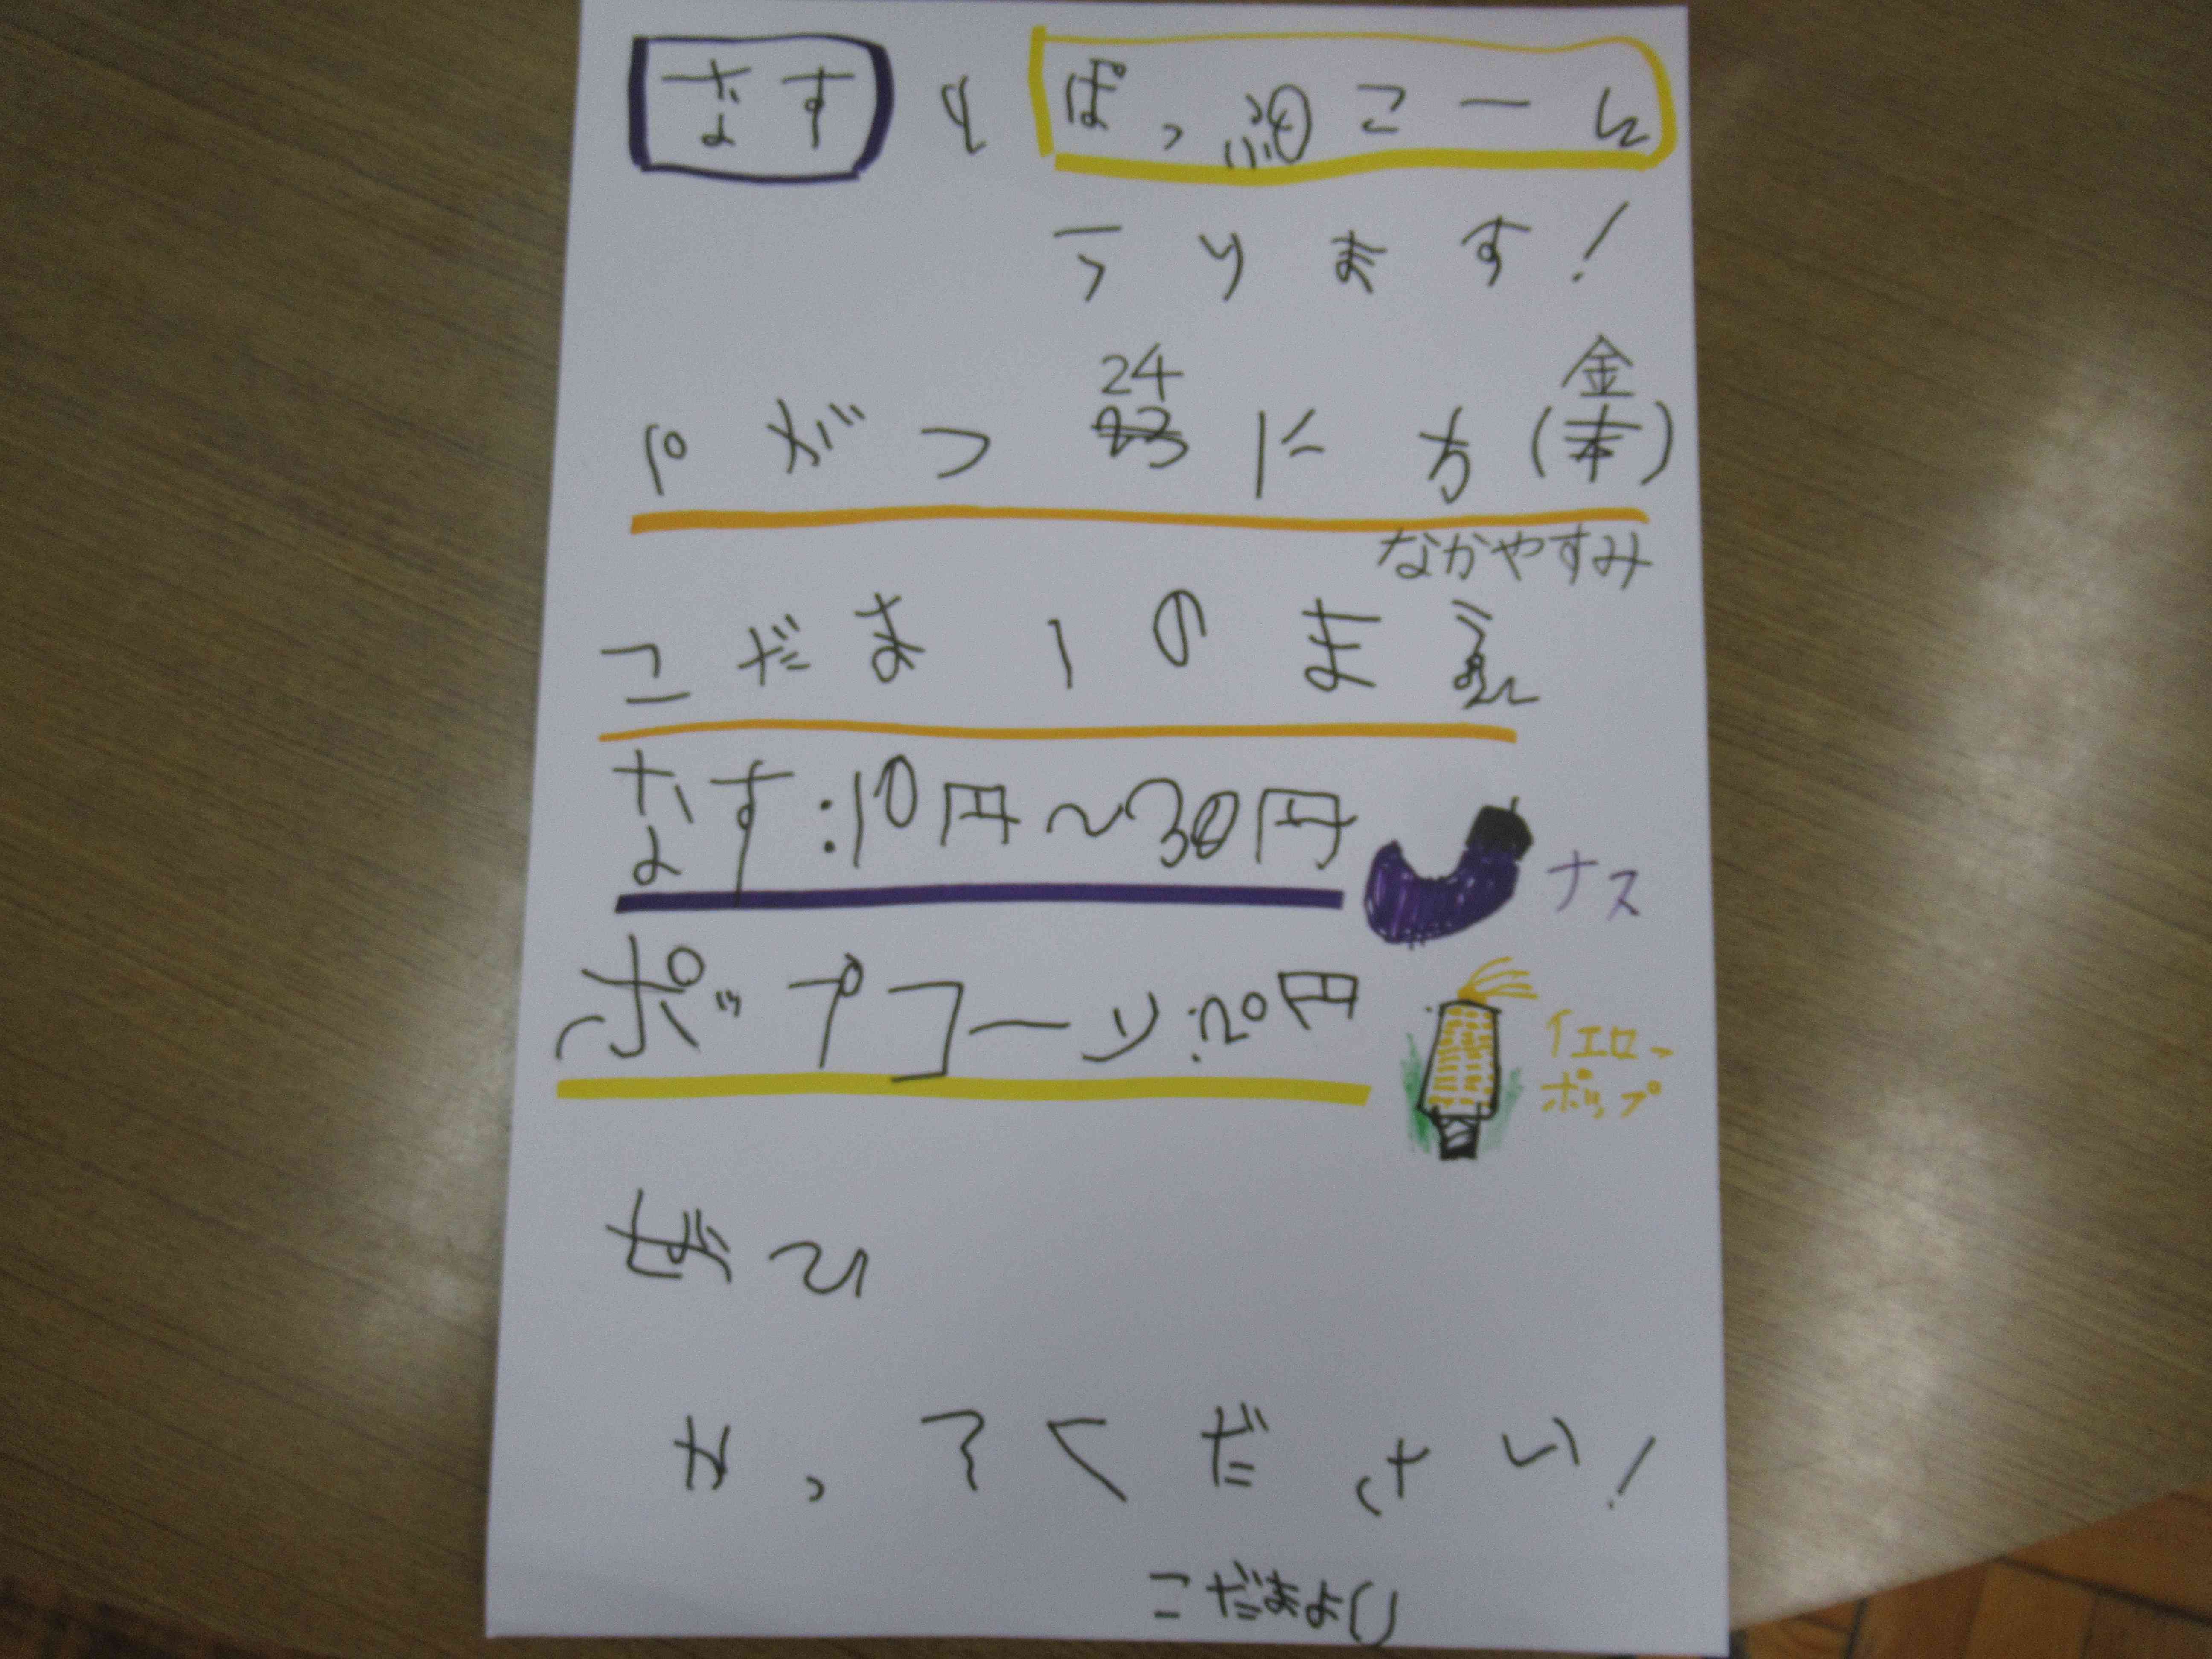 なす と ぽっぷこーん
うります!
24 金
9がつ 23 にち (木)
なかやすみ
こだま1のまえ
なす:10円~30円
ナス
ポップコーン:20円
イエロー
ポップ
ぜひ
かってください!
こだまより